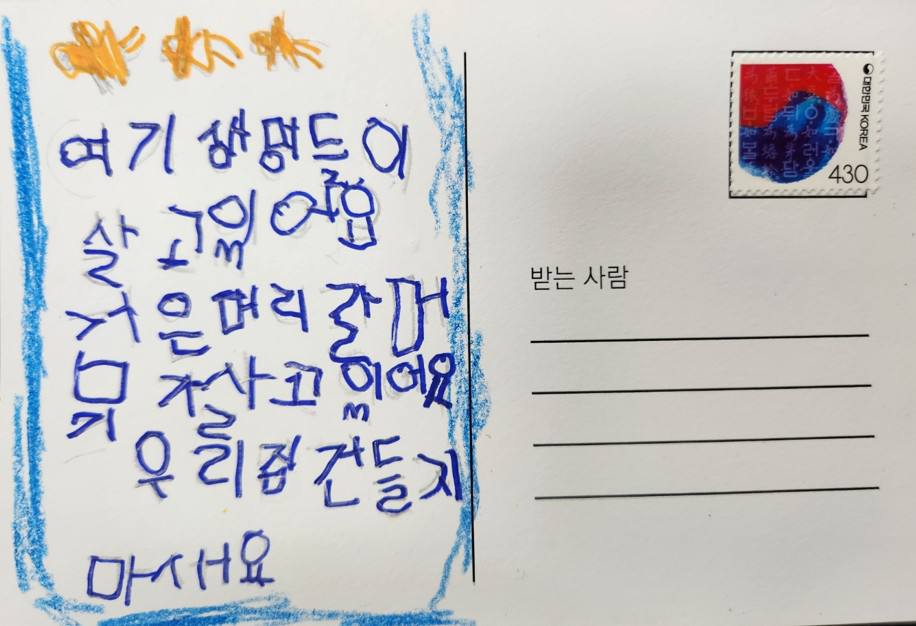 여기 생명들이
살 고있어요
은머리갈
살고있어요
우리집 건들지
마세요
받는 사람
대한민국 KOREA
430